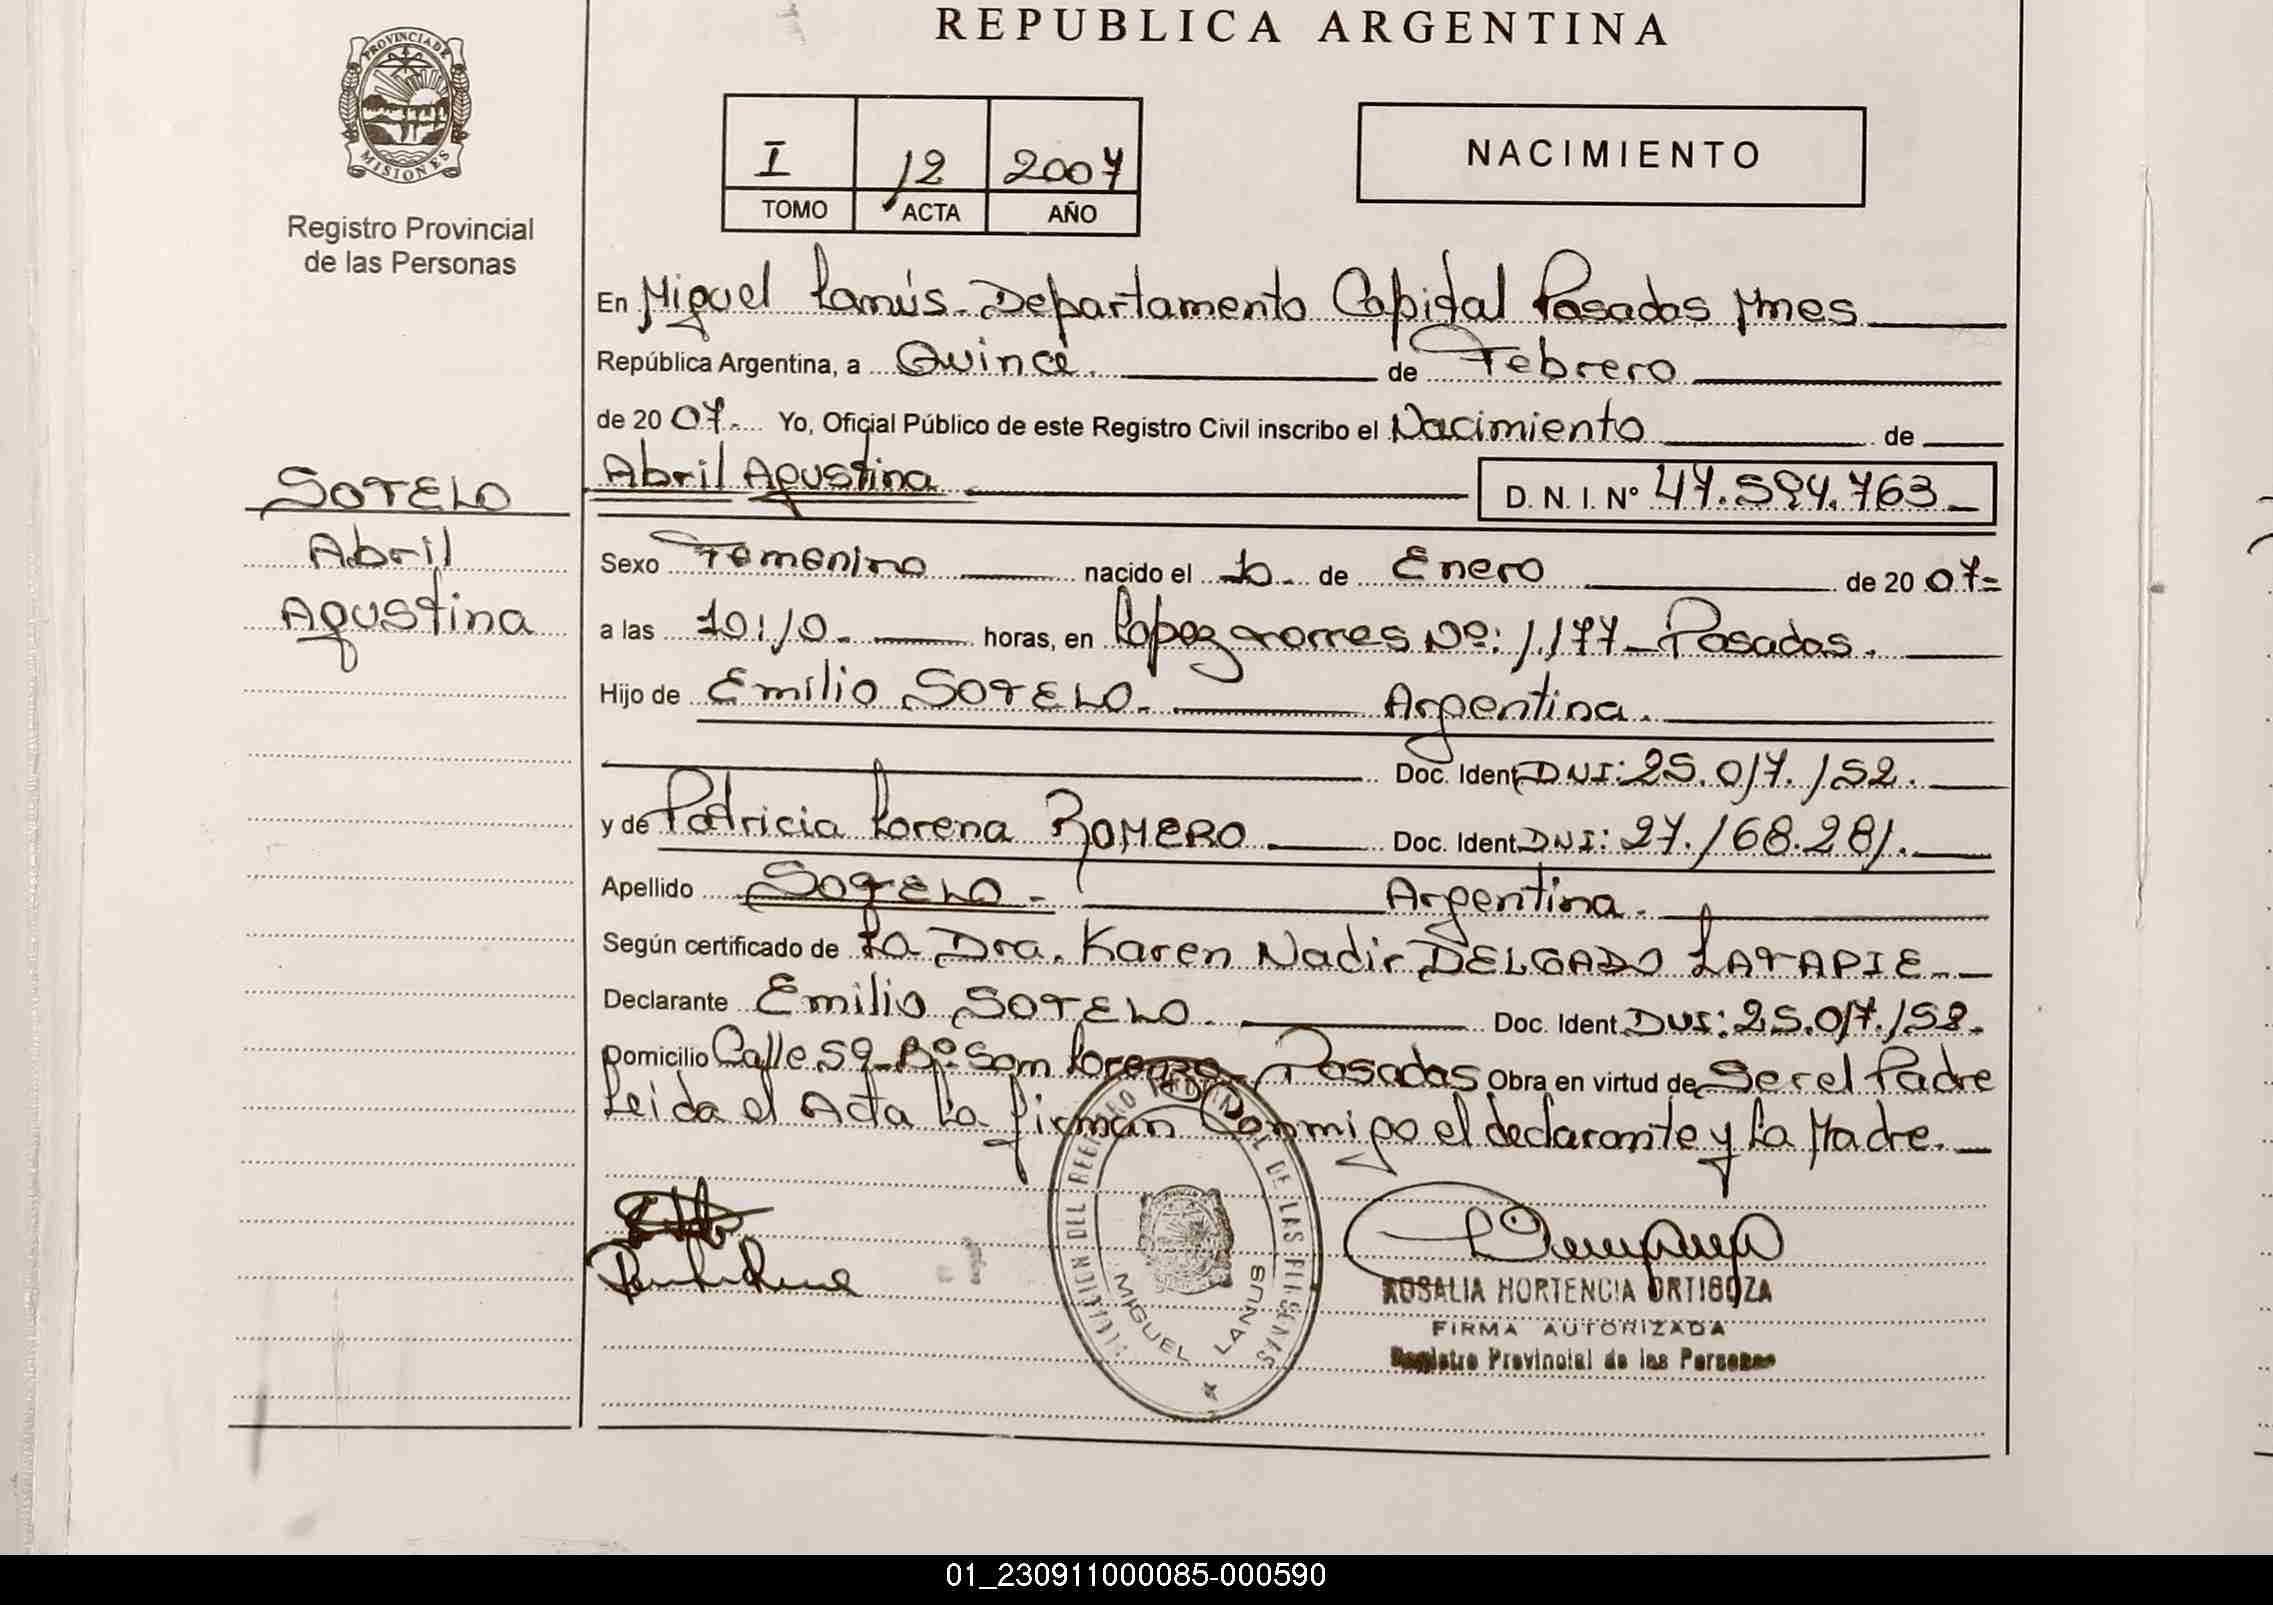 REPUBLICA ARGENTINA
PROVINCIA DE
MISIONES
Registro Provincial
de las Personas
I 12 2007
TOMO ACTA AÑO
NACIMIENTO
En Miguel Lanús - Departamento Capital Posadas Mnes
República Argentina, a Quince. de Febrero
de 20 07. Yo, Oficial Público de este Registro Civil inscribo el Nacimiento de
Abril Agustina D. N. I. Nº 47.594.763
SOTELO
Abril
Agustina
Sexo Femenino nacido el 10 de Enero de 20 07=
a las 10:10. horas, en Lopez Torres Nº: 1.177 - Posadas.
Hijo de Emilio SOTELO. Argentina.
Doc. Ident. DNI: 25.017.152.
y de Patricia Lorena ROMERO Doc. Ident. DNI: 27.168.281.
Apellido SOTELO. Argentina.
Según certificado de La Dra. Karen Nadir DELGADO LATAPIE
Declarante Emilio SOTELO. Doc. Ident. DNI: 25.017.152.
Domicilio Calle 59 - Bº San Lorenzo - Posadas Obra en virtud de Ser el Padre
Leida el Acta La firman Conmigo el declarante y La Madre.
DEL REGISTRO DE LAS PERSONAS
MIGUEL LANUS
ROSALIA HORTENCIA ORTIGOZA
FIRMA AUTORIZADA
Registro Provincial de las Personas
01_230911000085-000590